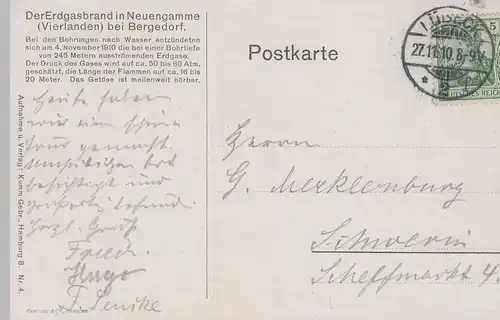 Der Erdgasbrand in Neuengamme
(Vierlanden) bei Bergedorf.
Bei den Bohrungen nach Wasser entzündeten
sich am 4. November 1910 die bei einer Bohrtiefe
von 245 Metern ausströmenden Erdgase.
Der Druck des Gases wird auf ca. 50 bis 60 Atm.
geschätzt, die Länge der Flammen auf ca. 16 bis
20 Meter. Das Getöse ist meilenweit hörbar.
Aufnahme u. Verlag: Kumm Gebr., Hamburg 8. Nr. 4.
Heute haben
wir eine schöne
Tour gemacht.
besichtigt und
Herzl. Gruß
Fried.
Hugo
Postkarte
LÜBECK
27.11.10. 8-9V.
* 2
5
DEUTSCHES REICH
Herrn
G. Mecklenburg
Schwerin
Scheffmarkt 4.